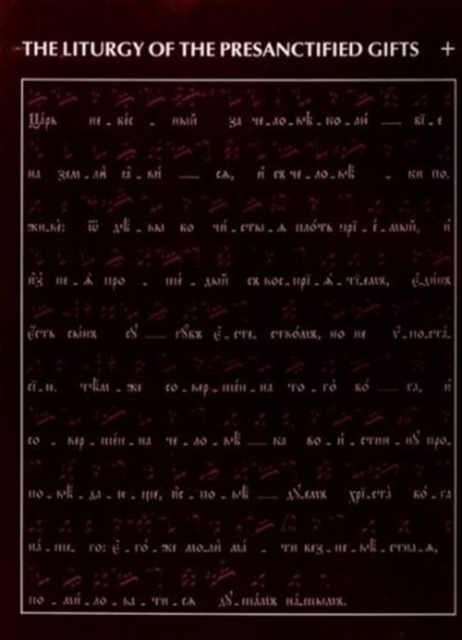 THE LITURGY OF THE PRESANCTIFIED GIFTS +
Цр҃ь не - бе́с - ный за че - ло - вѣ - ко - лю́ — бї - е
на зем - лѝ ꙗ҆ - ви́ — сѧ, и҆ съ че - ло - вѣ̑ - ки по -
жи - вѐ: ѿ дв҃ - ы бо чи́ - сты - ѧ пло́ть прї - е́ - мый, и҆
и҆з̾ не - ѧ̀ про - ше́ - дый съ вос - прї - ѧ́ - тї - емъ, є҆ди́нъ
є҆́сть сы́нъ сꙋ — гꙋ́бъ є҆ - сте - ство́мъ, но не ѵ҆ - по - ста́ -
сї - ю. тѣ́м - же со - вер - ше́н - на то - го̀ бо́ — га, и҆
со - вер - ше́н - на че - ло - вѣ́ — ка во - и́ - стин - нꙋ про -
по - вѣ́ - да - ю - ще, и҆с - по - вѣ́ — дꙋ - емъ хрї - ста̀ бо́ - га
на́ - ше - го: є҆ - го́ - же молѝ ма́ - ти без - не - вѣ́ - стна - ѧ,
по - ми́ - ло - ва - ти - сѧ дꙋ - ша́мъ на́шымъ.